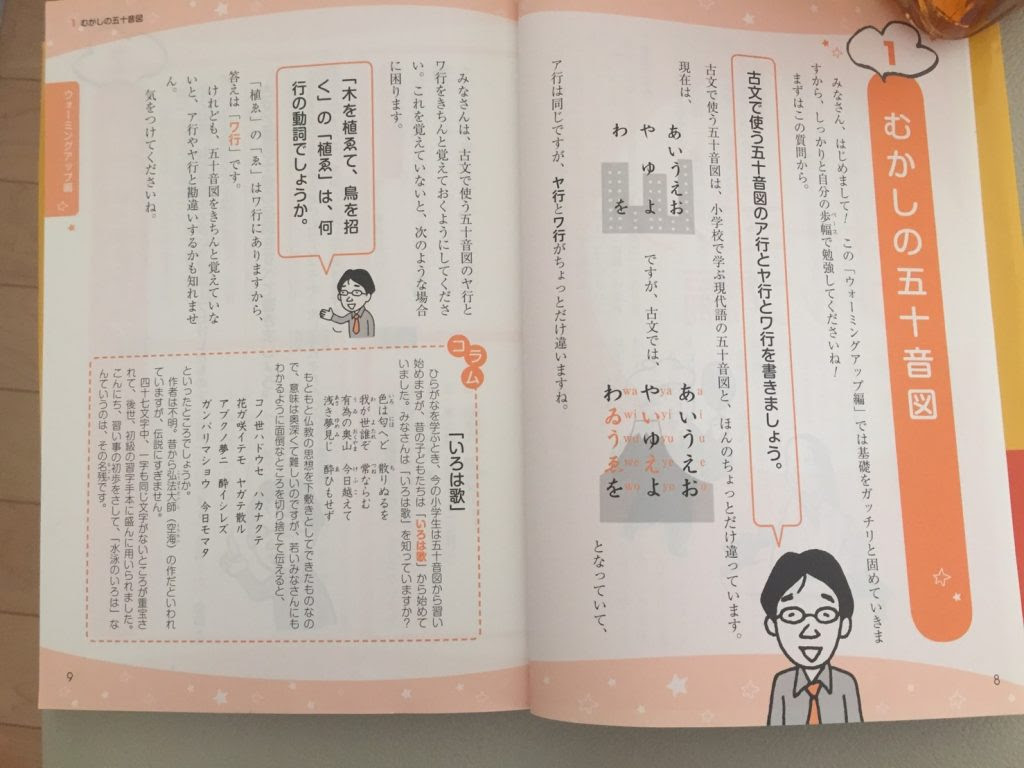 1
むかしの五十音図
みなさん、はじめまして! この「ウォーミングアップ編」では基礎をガッチリと固めていきま
すから、しっかりと自分の歩幅で勉強してくださいね!
まずはこの質問から。
古文で使う五十音図のア行とヤ行とワ行を書きましょう。
古文で使う五十音図は、小学校で学ぶ現代語の五十音図と、ほんのちょっとだけ違っています。
現在は、
あいうえお
や ゆ よ
わ を
ですが、古文では、
a i u e o
あいうえお
ya yi yu ye yo
やいゆえよ
wa wi wu we wo
わゐうゑを
となっていて、
ア行は同じですが、ヤ行とワ行がちょっとだけ違いますね。
8
1 むかしの五十音図
ウォーミングアップ編
みなさんは、古文で使う五十音図のヤ行と
ワ行をきちんと覚えておくようにしてくださ
い。これを覚えていないと、次のような場合
に困ります。
「木を植ゑて、鳥を招
く」の「植ゑ」は、何
行の動詞でしょうか。
「植ゑ」の「ゑ」はワ行にありますから、
答えは「ワ行」です。
けれども、五十音図をきちんと覚えていな
いと、ア行やヤ行と勘違いするかも知れませ
ん。
気をつけてくださいね。
コラム
「いろは歌」
ひらがなを学ぶとき、今の小学生は五十音図から習い
始めますが、昔の子どもたちは「いろは歌」から始めて
いました。みなさんは「いろは歌」を知っていますか?
色は匂へど 散りぬるを
我が世誰ぞ 常ならむ
有為の奥山 今日越えて
浅き夢見じ 酔ひもせず
もともと仏教の思想を下敷きとしてできたものなの
で、意味は奥深くて難しいのですが、若いみなさんにも
わかるように面倒なところを切り捨てて伝えると、
コノ世ハドウセ ハカナクテ
花ガ咲イテモ ヤガテ散ル
アブクノ夢ニ 酔イシレズ
ガンバリマショウ 今日モマタ
といったところでしょうか。
作者は不明。昔から弘法大師(空海)の作だといわれ
ていますが、伝説にすぎません。
四十七文字中、一字も同じ文字がないところが重宝さ
れて、後世、初級の習字手本に盛んに用いられました。
こんにち、習い事の初歩をさして、「水泳のいろは」な
んていうのは、その名残です。
9